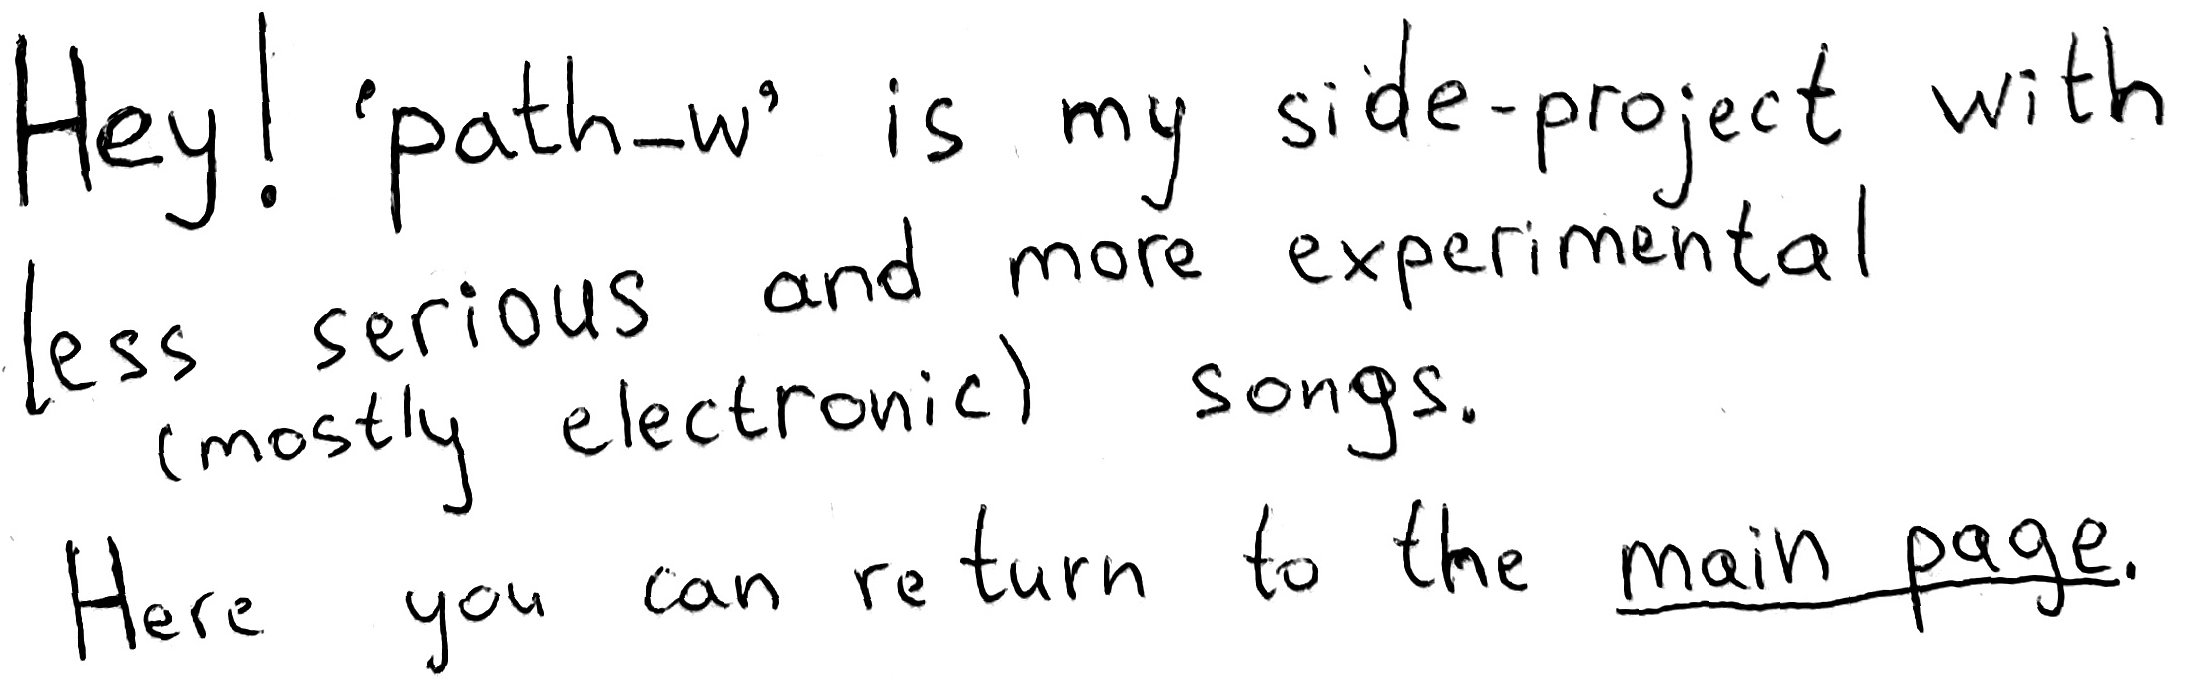 Hey! 'path_w' is my side-project with
less serious and more experimental
(mostly electronic) songs.
Here you can return to the main page.